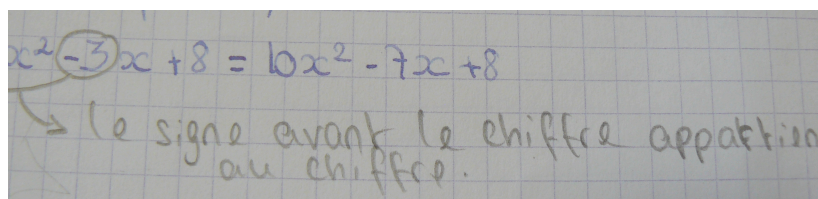 x² -3x + 8 = 10x² - 7x + 8
le signe avant le chiffre appartien
au chiffre.